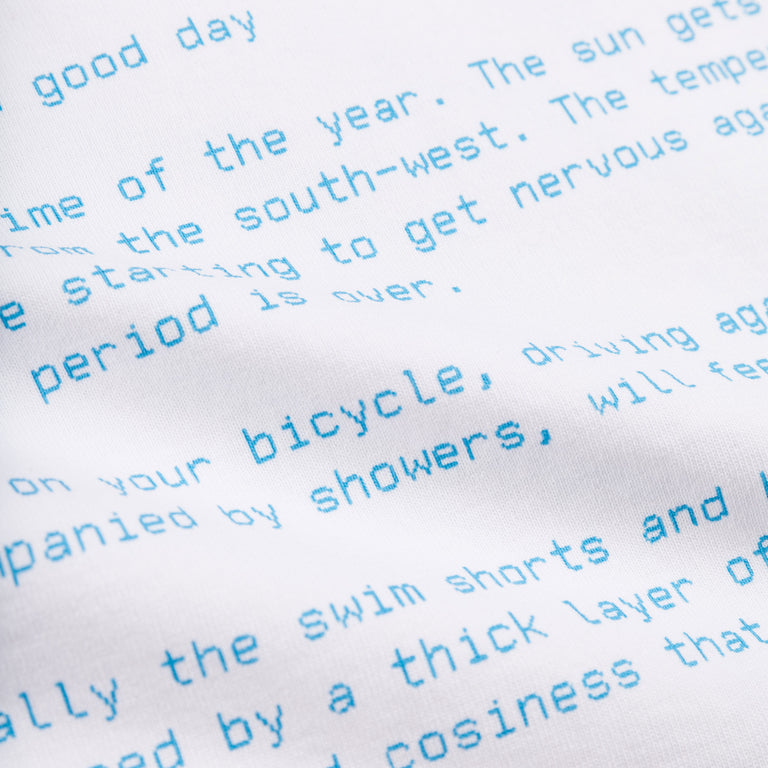 good day
ime of the year. The sun gets
rom the south-west. The tempe
e starting to get nervous aga
period is over.
on your bicycle, driving aga
panied by showers, will fee
ally the swim shorts and
ed by a thick layer of
cosiness that